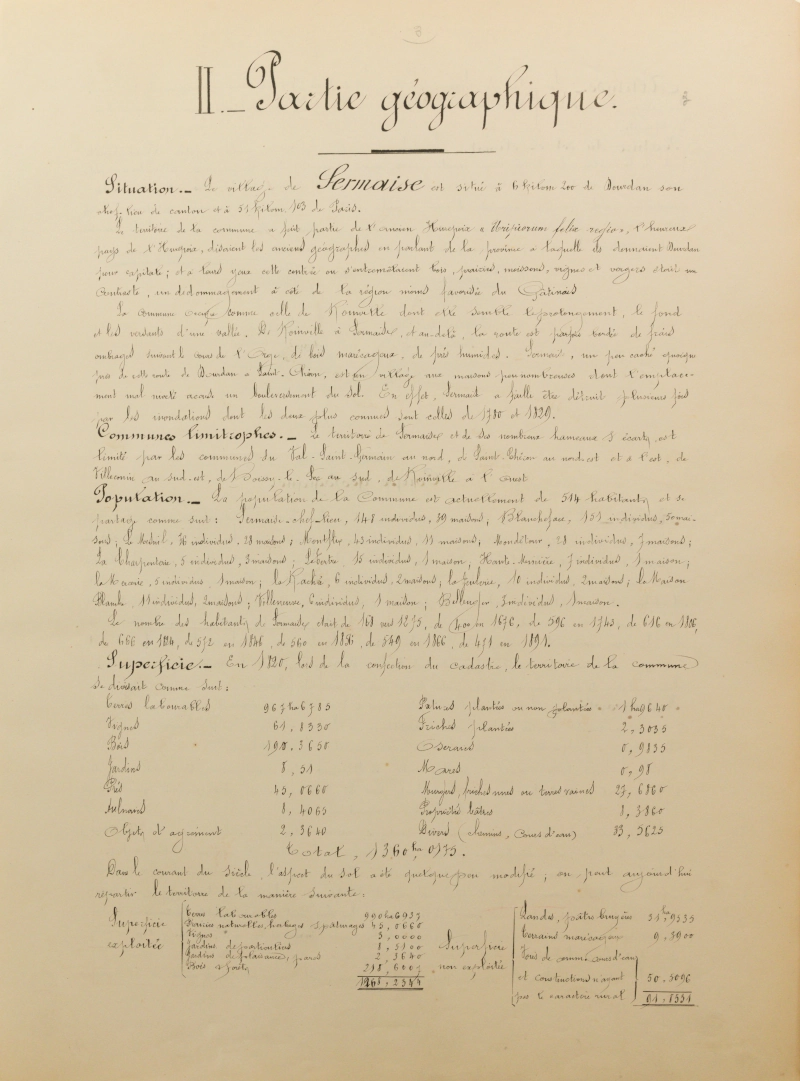 II. _ Partie géographique.
Situation. _ Le village de Sermaise est situé à 6 kilom 200 de Dourdan son
chef-lieu de canton et à 51 kilom 103 de Paris.
Le territoire de la commune a fait partie de l'ancien Hurepoix « felix regio », l'heureux
pays de l'Hurepoix, disaient les anciens géographes en parlant de la province à laquelle ils donnaient Dourdan
pour capitale; et à leurs yeux cette contrée où s'entremêlaient bois, prairies, moissons, vignes et vergers était un
contraste, un dédommagement à côté de la région moins favorisée du Gâtinais
La commune occupe comme celle de Roinville dont elle semble le prolongement, le fond
et les versants d'une vallée. De Roinville à Sermaise, et au-delà, la route est bordée de prés
ombragés suivant le cours de l'Orge, de bois marécageux, de prés humides. Sermaise, un peu caché quoique
près de cette route de Dourdan à Saint-Chéron, est un village aux maisons peu nombreuses dont l'emplace-
ment mal nivelé accuse un bouleversement du sol. En effet, Sermaise a failli être détruit plusieurs fois
par les inondations dont les deux plus connues sont celles de 1780 et 1829.
Communes limitrophes. _ Le territoire de Sermaise et de ses nombreux hameaux et écarts, est
limité par les communes du Val-Saint-Germain au nord, de Saint-Chéron au nord-est et à l'est, de
Villeconin au sud-est, de Boissy-le-Sec au sud, de Roinville à l'ouest
Population. _ La population de la Commune est actuellement de 514 habitants et se
partage comme suit: Sermaise-chef-lieu, 148 individus, 59 maisons; Blancheface, 151 individus, 50 mai-
sons; Le Mesnil, 76 individus, 28 maisons; Montflix, 45 individus, 11 maisons; Mondétour, 28 individus, 7 maisons;
La Charpenterie, 5 individus, 3 maisons; 15 individus, 1 maison; 7 individus, 1 maison;
la Mercerie, 5 individus, 1 maison; le Rachè, 6 individus, 2 maisons; la 10 individus, 2 maisons; la Maison
Blanche, 11 individus, 2 maisons; Villeneuve, 6 individus, 1 maison; Bellengher, 3 individus, 1 maison.
Le nombre des habitants de Sermaise était de 168 vers 1275, de 400 en 1676, de 596 en 1745, de 616 en 1806,
de 666 en 1814, de 572 en 1846, de 560 en 1856, de 549 en 1866, de 471 en 1891.
Superficie. _ En 1820, lors de la confection du cadastre, le territoire de la commune
se divisait comme suit:
Terres labourables 967 ha 6785
Vignes 61, 8330
Bois 190, 3650
Jardins 8, 51
Prés 45, 0660
Aulnaies 8, 4065
Objets d'agrément 2, 3640
Patures plantées ou non plantées « 1 ha 9640 »
Friches plantées 2, 3035
Oseraies 0, 9835
Mares 0, 98
Murgers, friches nues ou terres vaines 27, 6860
Propriétés bâties 8, 3860
Divers (chemins, cours d'eau) 83, 5625
Total, 1360 ha, 0175.
Dans le courant du siècle, l'aspect du sol a été quelque peu modifié; on peut aujourd'hui
répartir le territoire de la manière suivante:
Superficie exploitée
Terres labourables 990 ha 6937
Prairies naturelles, herbages et pâturages 45, 0660
Vignes 5, 0000
Jardins de particuliers 8, 5100
Jardins de plaisance, parcs 2, 3640
Bois et forêts 218, 6007
1268, 2344
Superficie non exploitée
Landes, pâtis, bruyères 31 ha, 9535
Terrains marécageux 9, 3900
Cours d'eau
et constructions n'ayant 50, 5096
pas le caractère rural
91, 8531